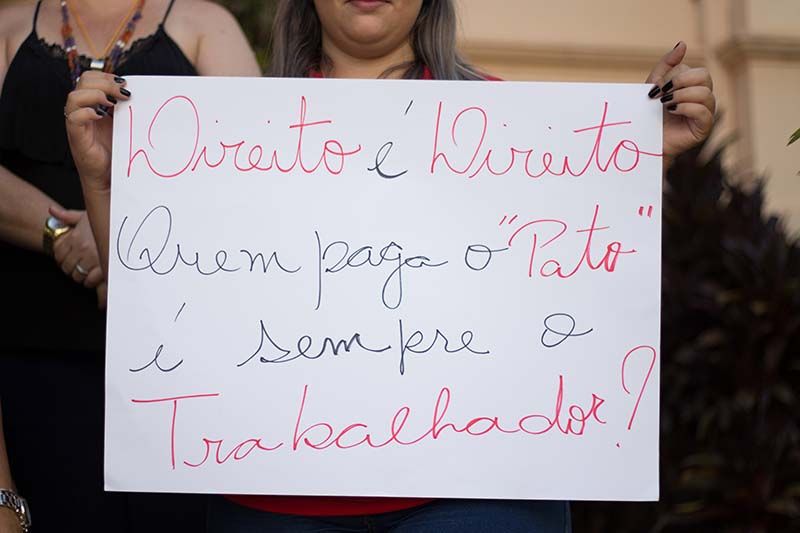 Direito é Direito
Quem paga o "Pato"
é sempre o
Trabalhador?